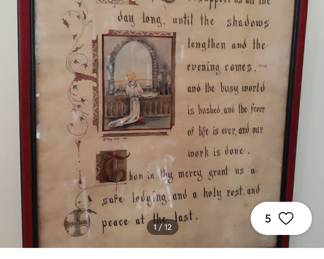 support us all the
day long, until the shadows
lengthen and the
evening comes,
and the busy world
is hushed, and the fever
of life is over, and our
work is done.
Then in thy mercy grant us a
safe lodging, and a holy rest, and
peace at the last.
1 / 12
5